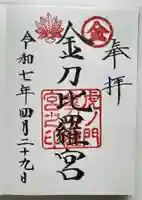 奉拝
金
金刀比羅宮
虎ノ門
令和七年四月二十九日